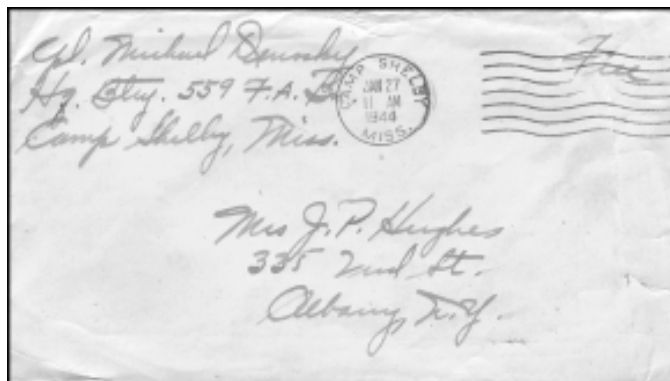 Cpl. Michael
Hq. Btry. 559 F.A. Bn
Camp Shelby, Miss.
CAMP SHELBY
JAN 27
11 AM
1944
MISS.
Free
Mrs J. P. Hughes
335 2nd St.
Albany, N.Y.